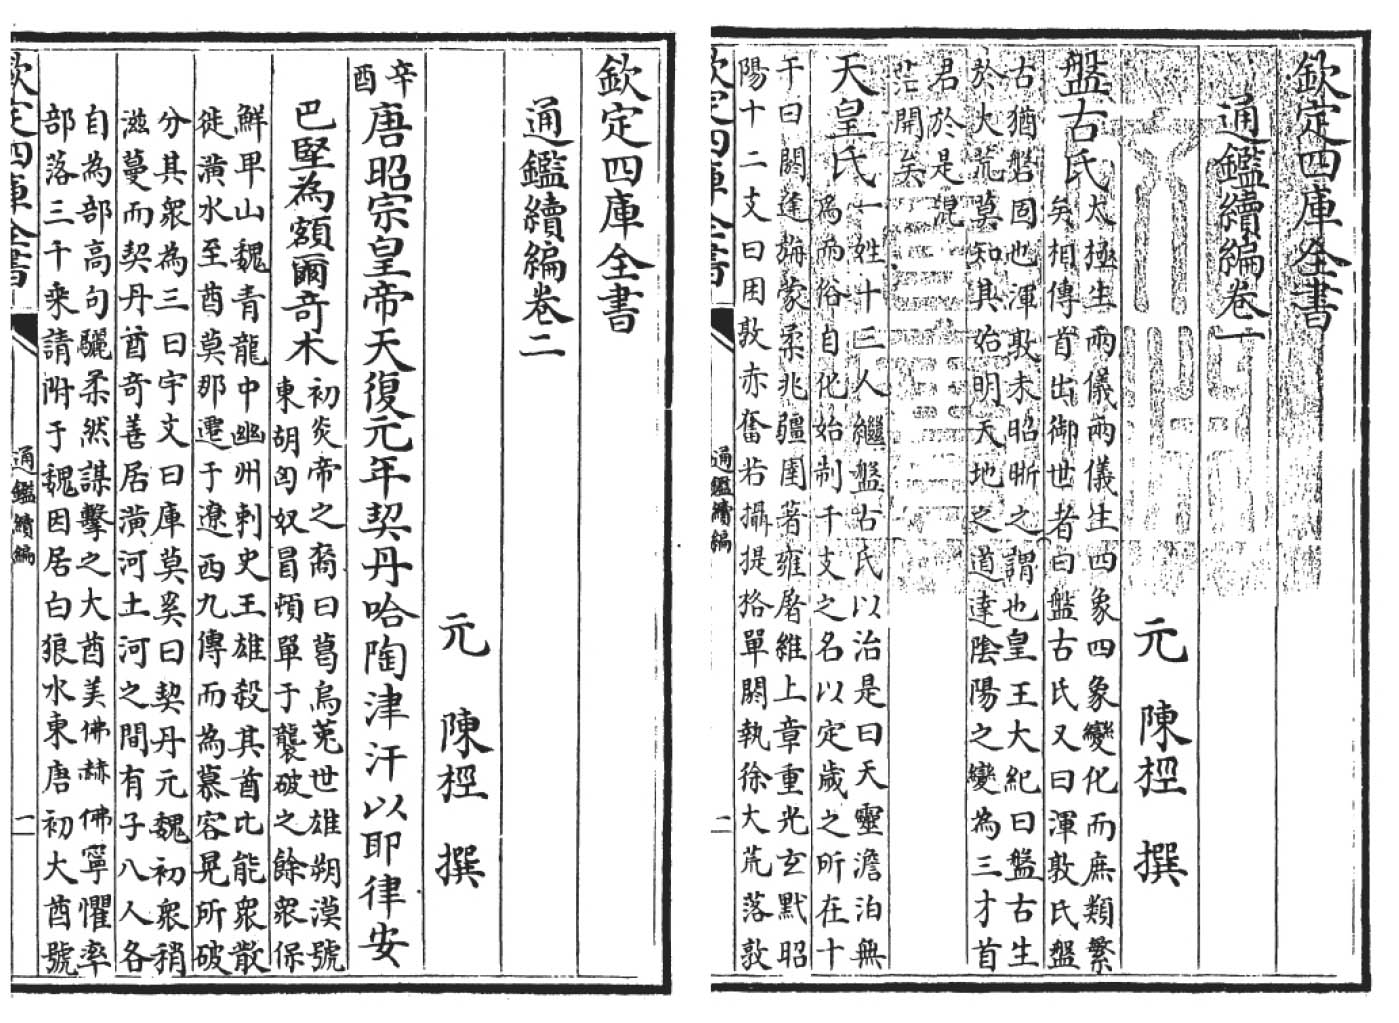 欽定四庫全書
通鑑續編卷一
元 陳桱 撰
盤古氏太極生兩儀兩儀生四象四象變化而庶類繁
矣相傳首出御世者曰盤古氏又曰渾敦氏盤
古猶磐固也渾敦未昭晰之謂也皇王大紀曰盤古生
於大荒莫知其始明天地之道達陰陽之變為三才首
君於是混
茫開矣
天皇氏一姓十三人繼盤古氏以治是曰天靈澹泊無
為而俗自化始制干支之名以定歲之所在十
干曰閼逢旃蒙柔兆疆圉著雍屠維上章重光玄黓昭
陽十二支曰困敦赤奮若攝提格單閼執徐大荒落敦
欽定四庫全書
通鑑續編
一
欽定四庫全書
通鑑續編卷二
元 陳桱 撰
辛酉唐昭宗皇帝天復元年契丹哈陶津汗以耶律安
巴堅為額爾奇木
初炎帝之裔曰葛烏菟世雄朔漠號
東胡匈奴冒頓單于襲破之餘衆保
鮮卑山魏青龍中幽州刺史王雄殺其酋比能衆散
徙潢水至酋莫那遷于遼西九傳而為慕容晃所破
分其衆為三曰宇文曰庫莫奚曰契丹元魏初衆稍
滋蔓而契丹酋奇善居潢河土河之間有子八人各
自為部高句驪柔然謀擊之大酋美佛赫佛寧懼率
部落三千乘請附于魏因居白狼水東唐初大酋號
欽定四庫全書
通鑑續編
一